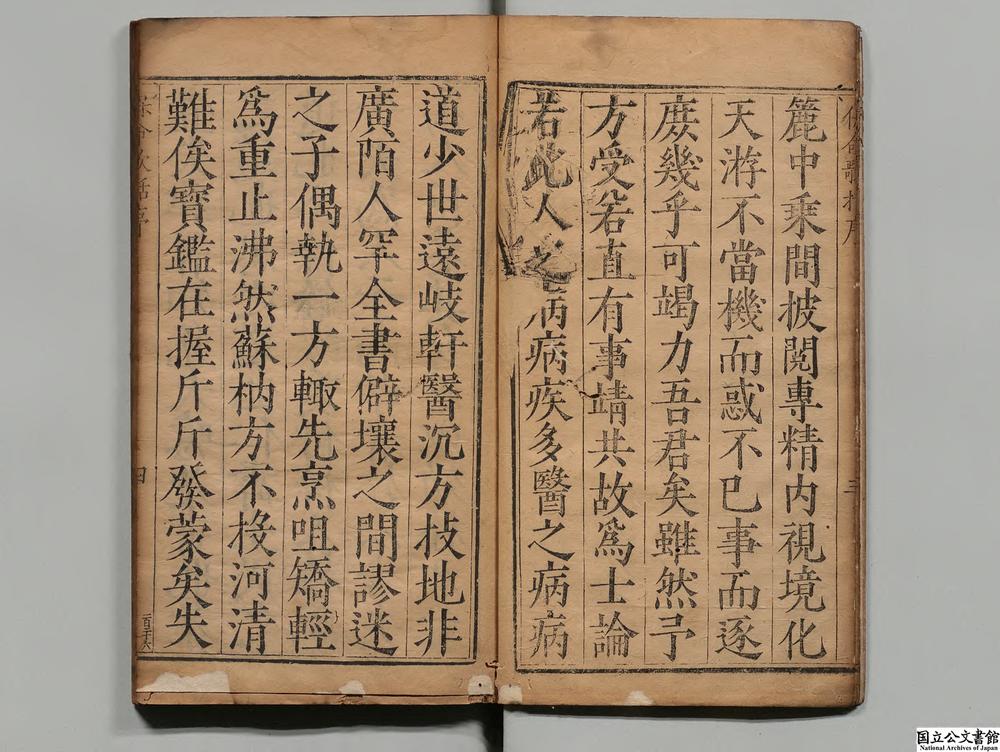 篦中乘間披閱專精內視境化
天游不當機而惑不已事而逐
庶幾乎可竭力吾君矣雖然予
方受窂直有事靖共故爲士論
若此人之病病疾多醫之病病
道少世遠岐軒醫沉方技地非
廣陌人罕全書僻壤之間謬迷
之子偶執一方輙先烹咀矯輕
爲重止沸然蘇枘方不投河清
難俟寶鑑在握斤斤發蒙矣失
四
三
国立公文書館
National Archives of Japan